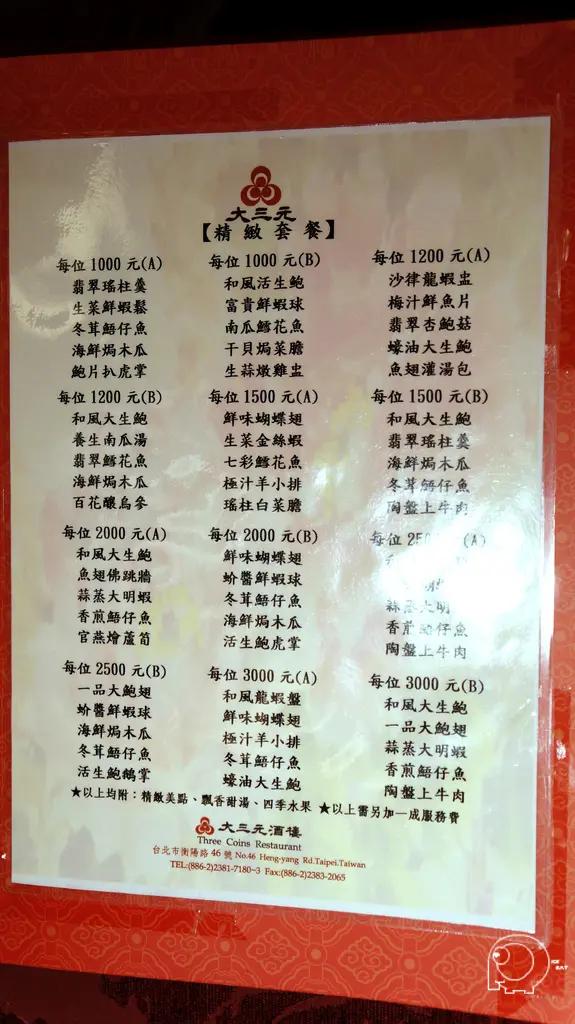 大三元
【精緻套餐】
每位 1000 元(A)
翡翠瑤柱羹
生菜鮮蝦鬆
冬茸鯃仔魚
海鮮焗木瓜
鮑片扒虎掌
每位 1000 元(B)
和風活生鮑
富貴鮮蝦球
南瓜鱈花魚
干貝焗菜膽
生蒜燉雞盅
每位 1200 元(A)
沙律龍蝦盅
梅汁鮮魚片
翡翠杏鮑菇
蠔油大生鮑
魚翅灌湯包
每位 1200 元(B)
和風大生鮑
養生南瓜湯
翡翠鱈花魚
海鮮焗木瓜
百花釀烏參
每位 1500 元(A)
鮮味蝴蝶翅
生菜金絲蝦
七彩鱈花魚
極汁羊小排
瑤柱白菜膽
每位 1500 元(B)
和風大生鮑
翡翠瑤柱羹
海鮮焗木瓜
冬茸鯃仔魚
陶盤上牛肉
每位 2000 元(A)
和風大生鮑
魚翅佛跳牆
蒜蒸大明蝦
香煎鯃仔魚
官燕燴蘆筍
每位 2000 元(B)
鮮味蝴蝶翅
蚧醬鮮蝦球
冬茸鯃仔魚
海鮮焗木瓜
活生鮑虎掌
每位 250 (A)
蒜蒸大明
香煎鯃仔魚
陶盤上牛肉
每位 2500 元(B)
一品大鮑翅
蚧醬鮮蝦球
海鮮焗木瓜
冬茸鯃仔魚
活生鮑鵝掌
每位 3000 元(A)
和風龍蝦盤
鮮味蝴蝶翅
極汁羊小排
冬茸鯃仔魚
蠔油大生鮑
每位 3000 元(B)
和風大生鮑
一品大鮑翅
蒜蒸大明蝦
香煎鯃仔魚
陶盤上牛肉
★以上均附：精緻美點、飄香甜湯、四季水果 ★以上需另加一成服務費
大三元酒樓
Three Coins Restaurant
台北市衡陽路 46 號 No.46 Heng-yang Rd.Taipei.Taiwan
TEL:(886-2)2381-7180~3 Fax:(886-2)2383-2065